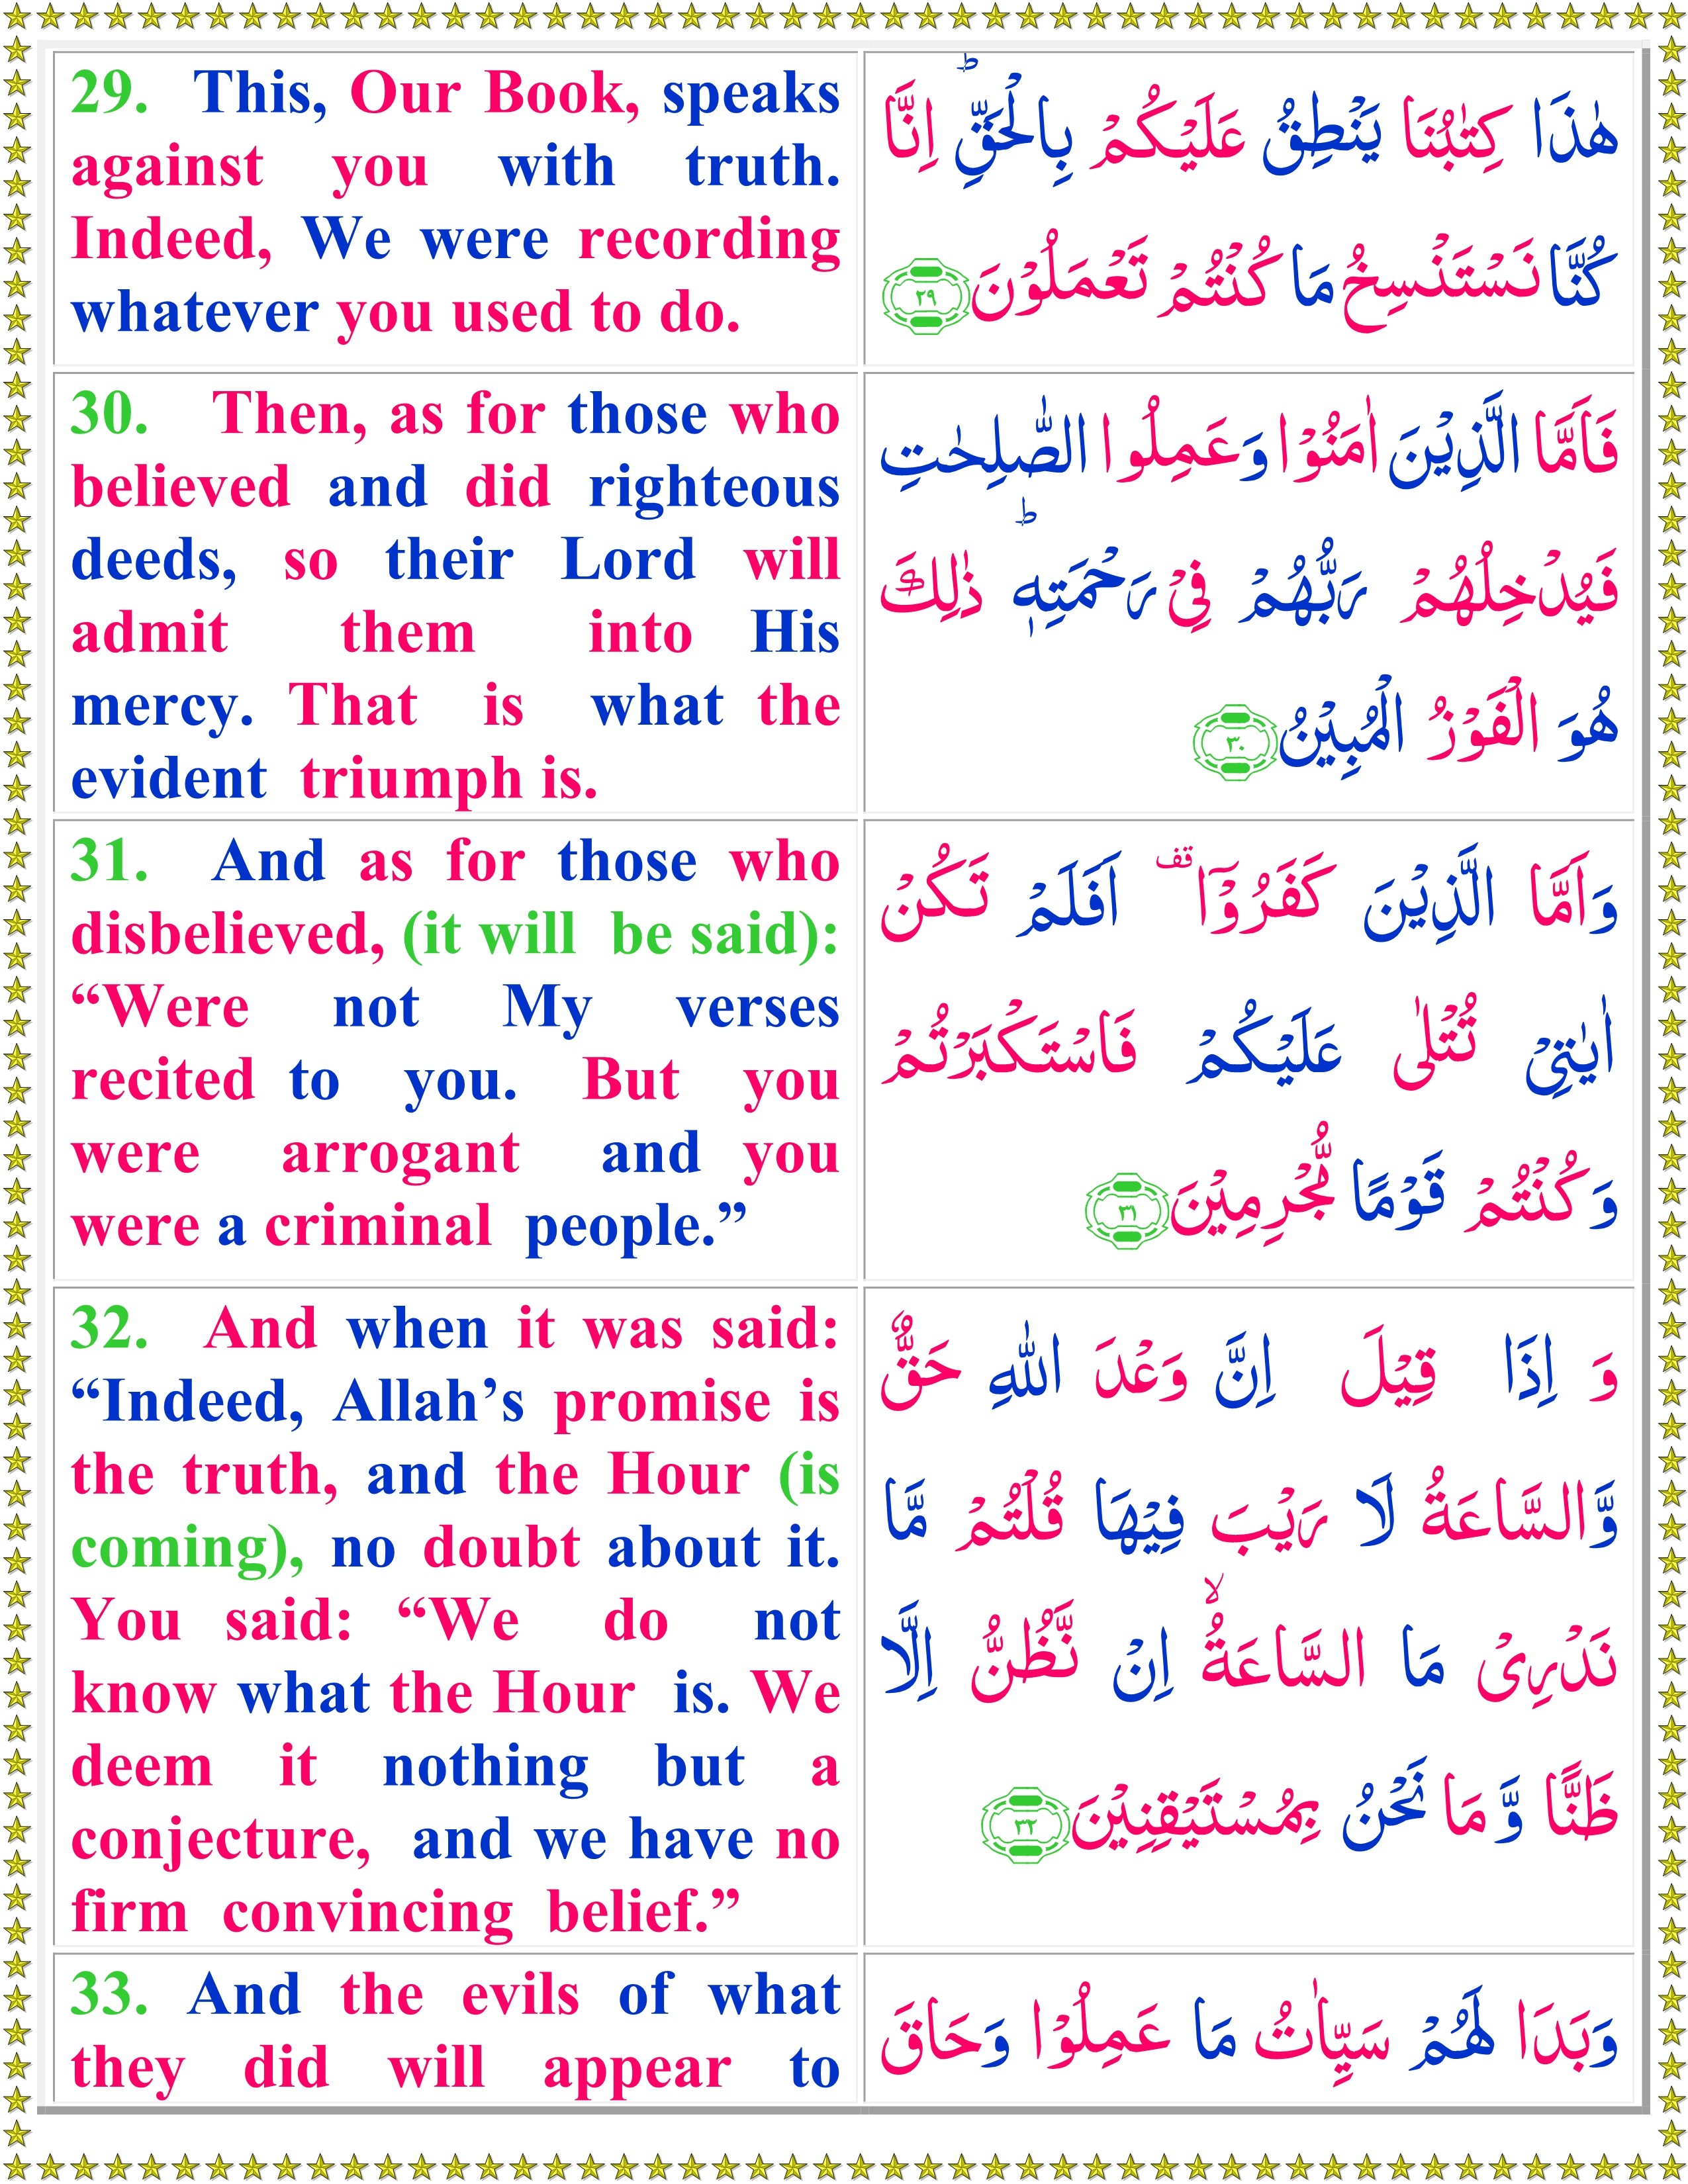 29. This, Our Book, speaks
against you with truth.
Indeed, We were recording
whatever you used to do.
هٰذَا كِتٰبُنَا يَنْطِقُ عَلَيْكُمْ بِالْحَقِّ ؕ اِنَّا
كُنَّا نَسْتَنْسِخُ مَا كُنْتُمْ تَعْمَلُوْنَ ۲۹
30. Then, as for those who
believed and did righteous
deeds, so their Lord will
admit them into His
mercy. That is what the
evident triumph is.
فَاَمَّا الَّذِيْنَ اٰمَنُوْا وَعَمِلُوا الصّٰلِحٰتِ
فَيُدْخِلُهُمْ رَبُّهُمْ فِىْ رَحْمَتِهٖ ؕ ذٰلِكَ
هُوَ الْفَوْزُ الْمُبِيْنُ ۳۰
31. And as for those who
disbelieved, (it will be said):
“Were not My verses
recited to you. But you
were arrogant and you
were a criminal people.”
وَاَمَّا الَّذِيْنَ كَفَرُوْٓا قف اَفَلَمْ تَكُنْ
اٰيٰتِىْ تُتْلٰى عَلَيْكُمْ فَاسْتَكْبَرْتُمْ
وَكُنْتُمْ قَوْمًا مُّجْرِمِيْنَ ۳۱
32. And when it was said:
“Indeed, Allah’s promise is
the truth, and the Hour (is
coming), no doubt about it.
You said: “We do not
know what the Hour is. We
deem it nothing but a
conjecture, and we have no
firm convincing belief.”
وَ اِذَا قِيْلَ اِنَّ وَعْدَ اللّٰهِ حَقٌّ
وَّالسَّاعَةُ لَا رَيْبَ فِيْهَا قُلْتُمْ مَّا
نَدْرِىْ مَا السَّاعَةُ ۙ اِنْ نَّظُنُّ اِلَّا
ظَنًّا وَّ مَا نَحْنُ بِمُسْتَيْقِنِيْنَ ۳۲
33. And the evils of what
they did will appear to
وَبَدَا لَهُمْ سَيِّاٰتُ مَا عَمِلُوْا وَحَاقَ